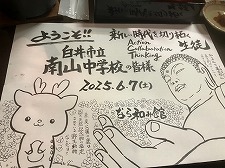 ようこそ!!
白井市立
南山中学校の皆様
新しい時代を切り拓く
Action
Collaboration
Thinking
生徒
2025.6.7(土)